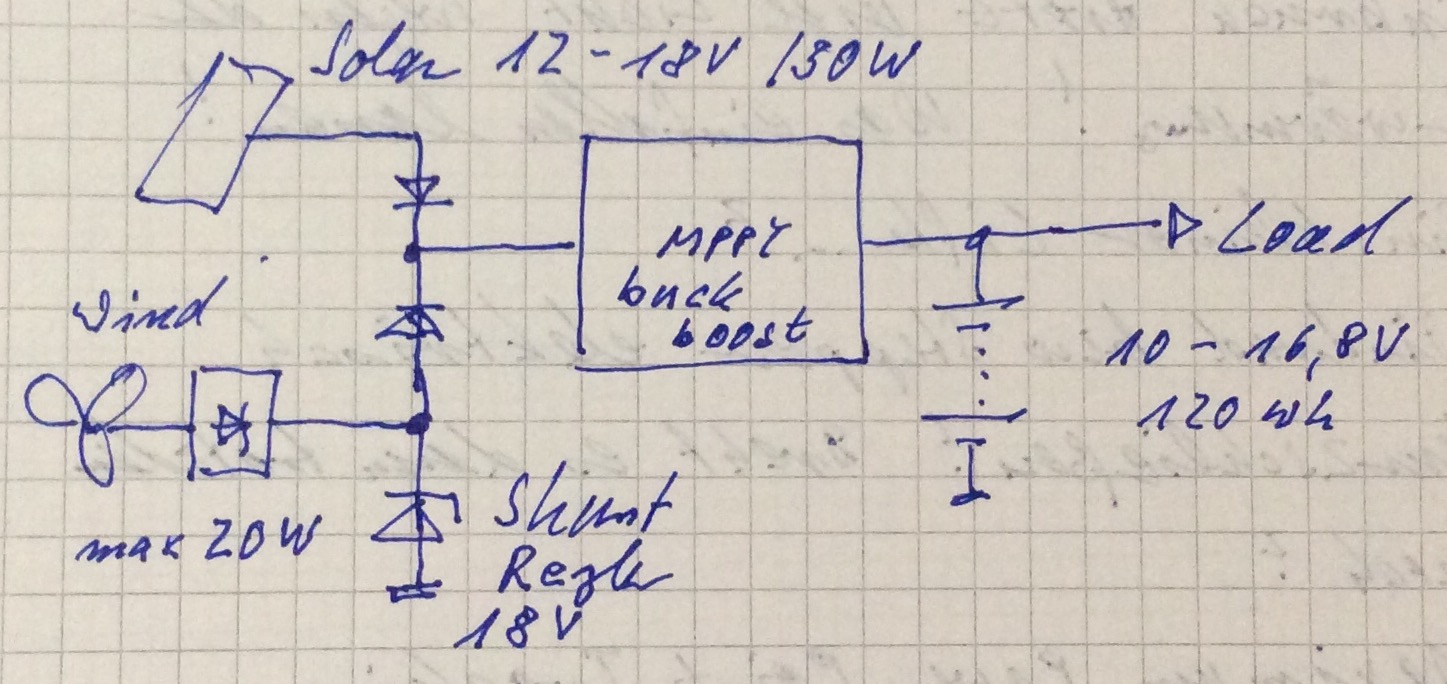 Solar 12-18V /30W
MPPT
buck
boost
Load
Wind
10-16,8V
120 Wh
max 20W
Shunt
Regler
18V